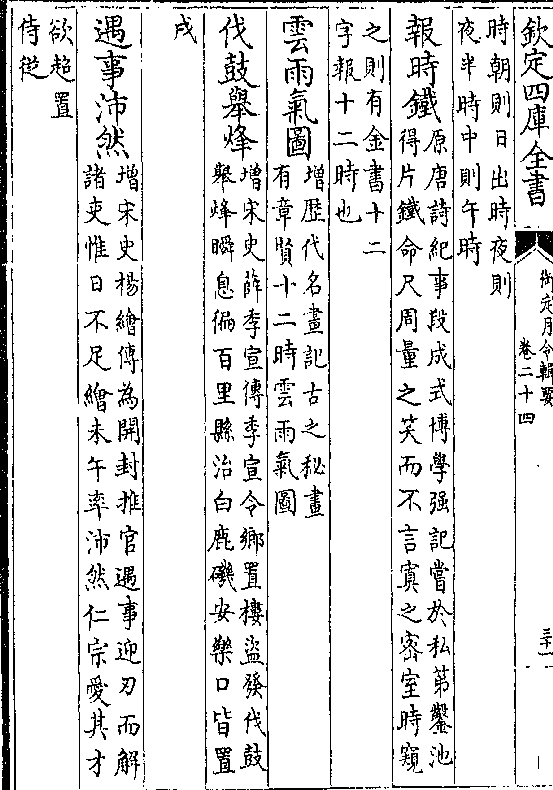 欽定四庫全書
御定月令輯要
卷二十四
三十一
時朝則日出時夜則
夜半時中則午時
報時鐵
原唐詩紀事段成式博學强記嘗於私第鑿池
得片鐵命尺周量之笑而不言寘之密室時窺
之則有金書十二
字報十二時也
雲雨氣圖
增歷代名畫記古之秘畫
有章賢十二時雲雨氣圖
伐鼓舉烽
增宋史薛季宣傳季宣令鄉置樓盜發伐鼓
舉烽瞬息徧百里縣治白鹿磯安樂口皆置
戍
遇事沛然
增宋史楊繪傳為開封推官遇事迎刃而解
諸吏惟日不足繪未午率沛然仁宗愛其才
欲超置
侍從